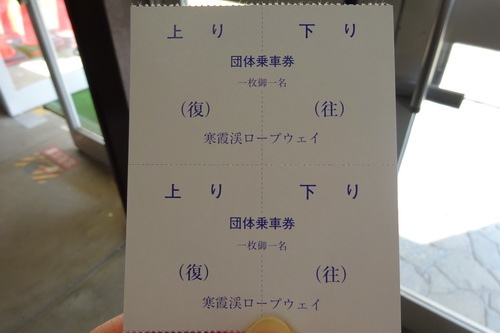 上り 下り
団体乗車券
一枚御一名
(復) (往)
寒霞渓ロープウェイ
上り 下り
団体乗車券
一枚御一名
(復) (往)
寒霞渓ロープウェイ